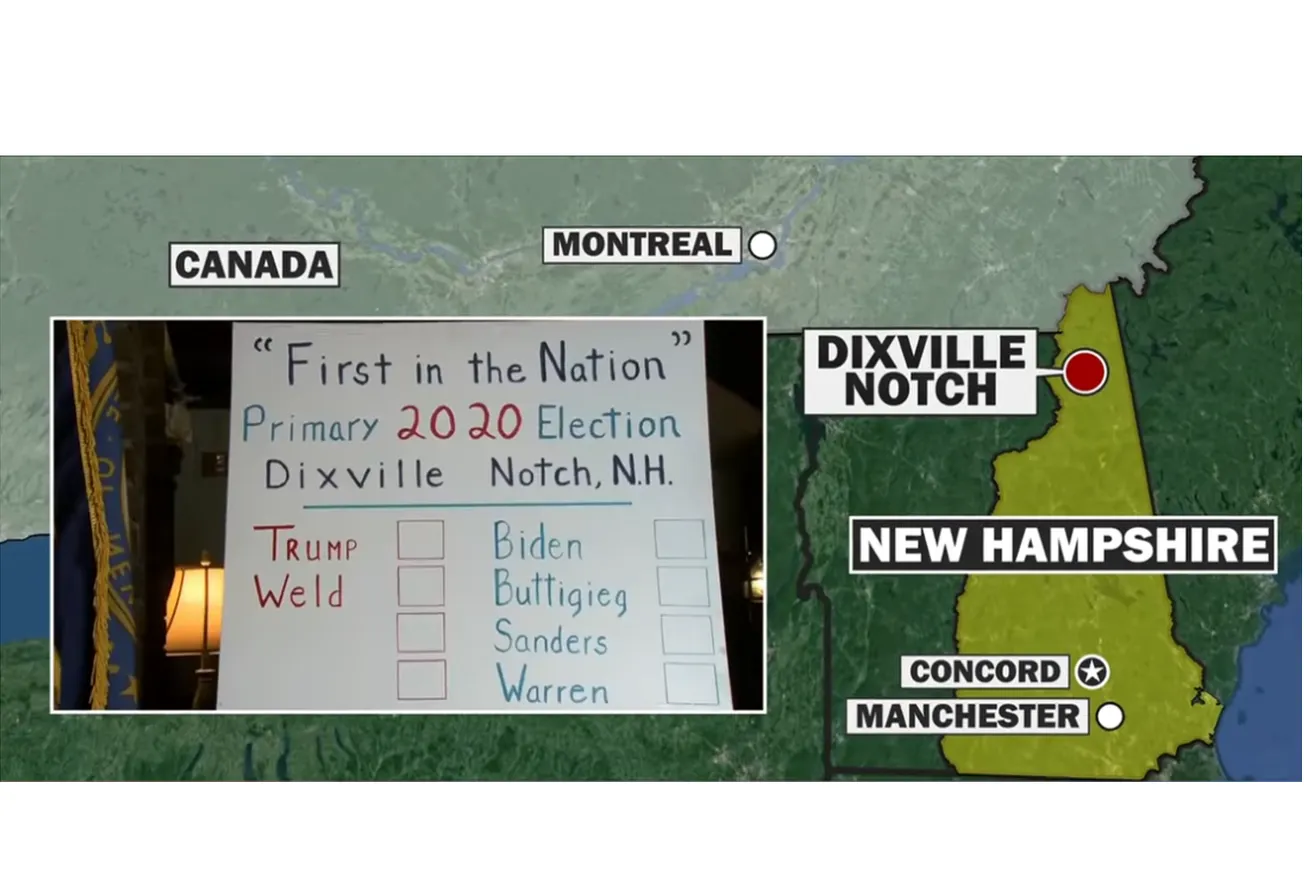 CANADA
MONTREAL
DIXVILLE
NOTCH
NEW HAMPSHIRE
CONCORD
MANCHESTER
“First in the Nation”
Primary 2020 Election
Dixville Notch, N.H.
TRUMP Biden
Weld Buttigieg
Sanders
Warren